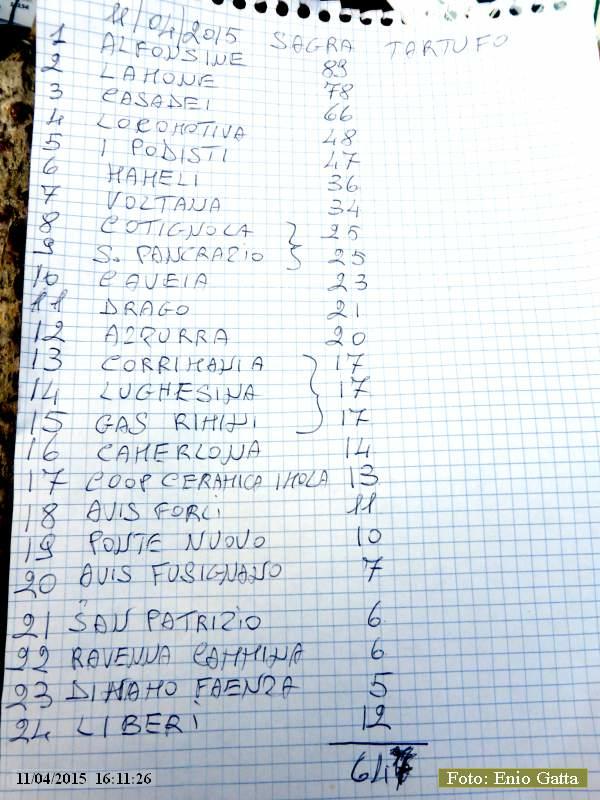 11/04/2015 SAGRA TARTUFO
1 ALFONSINE 89
2 LAMONE 78
3 CASADEI 66
4 LOCOMOTIVA 48
5 I PODISTI 47
6 MAMELI 36
7 VOLTANA 34
8 COTIGNOLA } 25
9 S. PANCRAZIO } 25
10 CAVEIA 23
11 DRAGO 21
12 AZZURRA 20
13 CORRIMANIA } 17
14 LUGHESINA } 17
15 GAS RIMINI } 17
16 CAMERLONA 14
17 COOP CERAMICA IMOLA 13
18 AVIS FORLI 11
19 PONTE NUOVO 10
20 AVIS FUSIGNANO 7
21 SAN PATRIZIO 6
22 RAVENNA CAMMINA 6
23 DINAMO FAENZA 5
24 LIBERI 12
647
11/04/2015 16:11:26
Foto: Enio Gatta